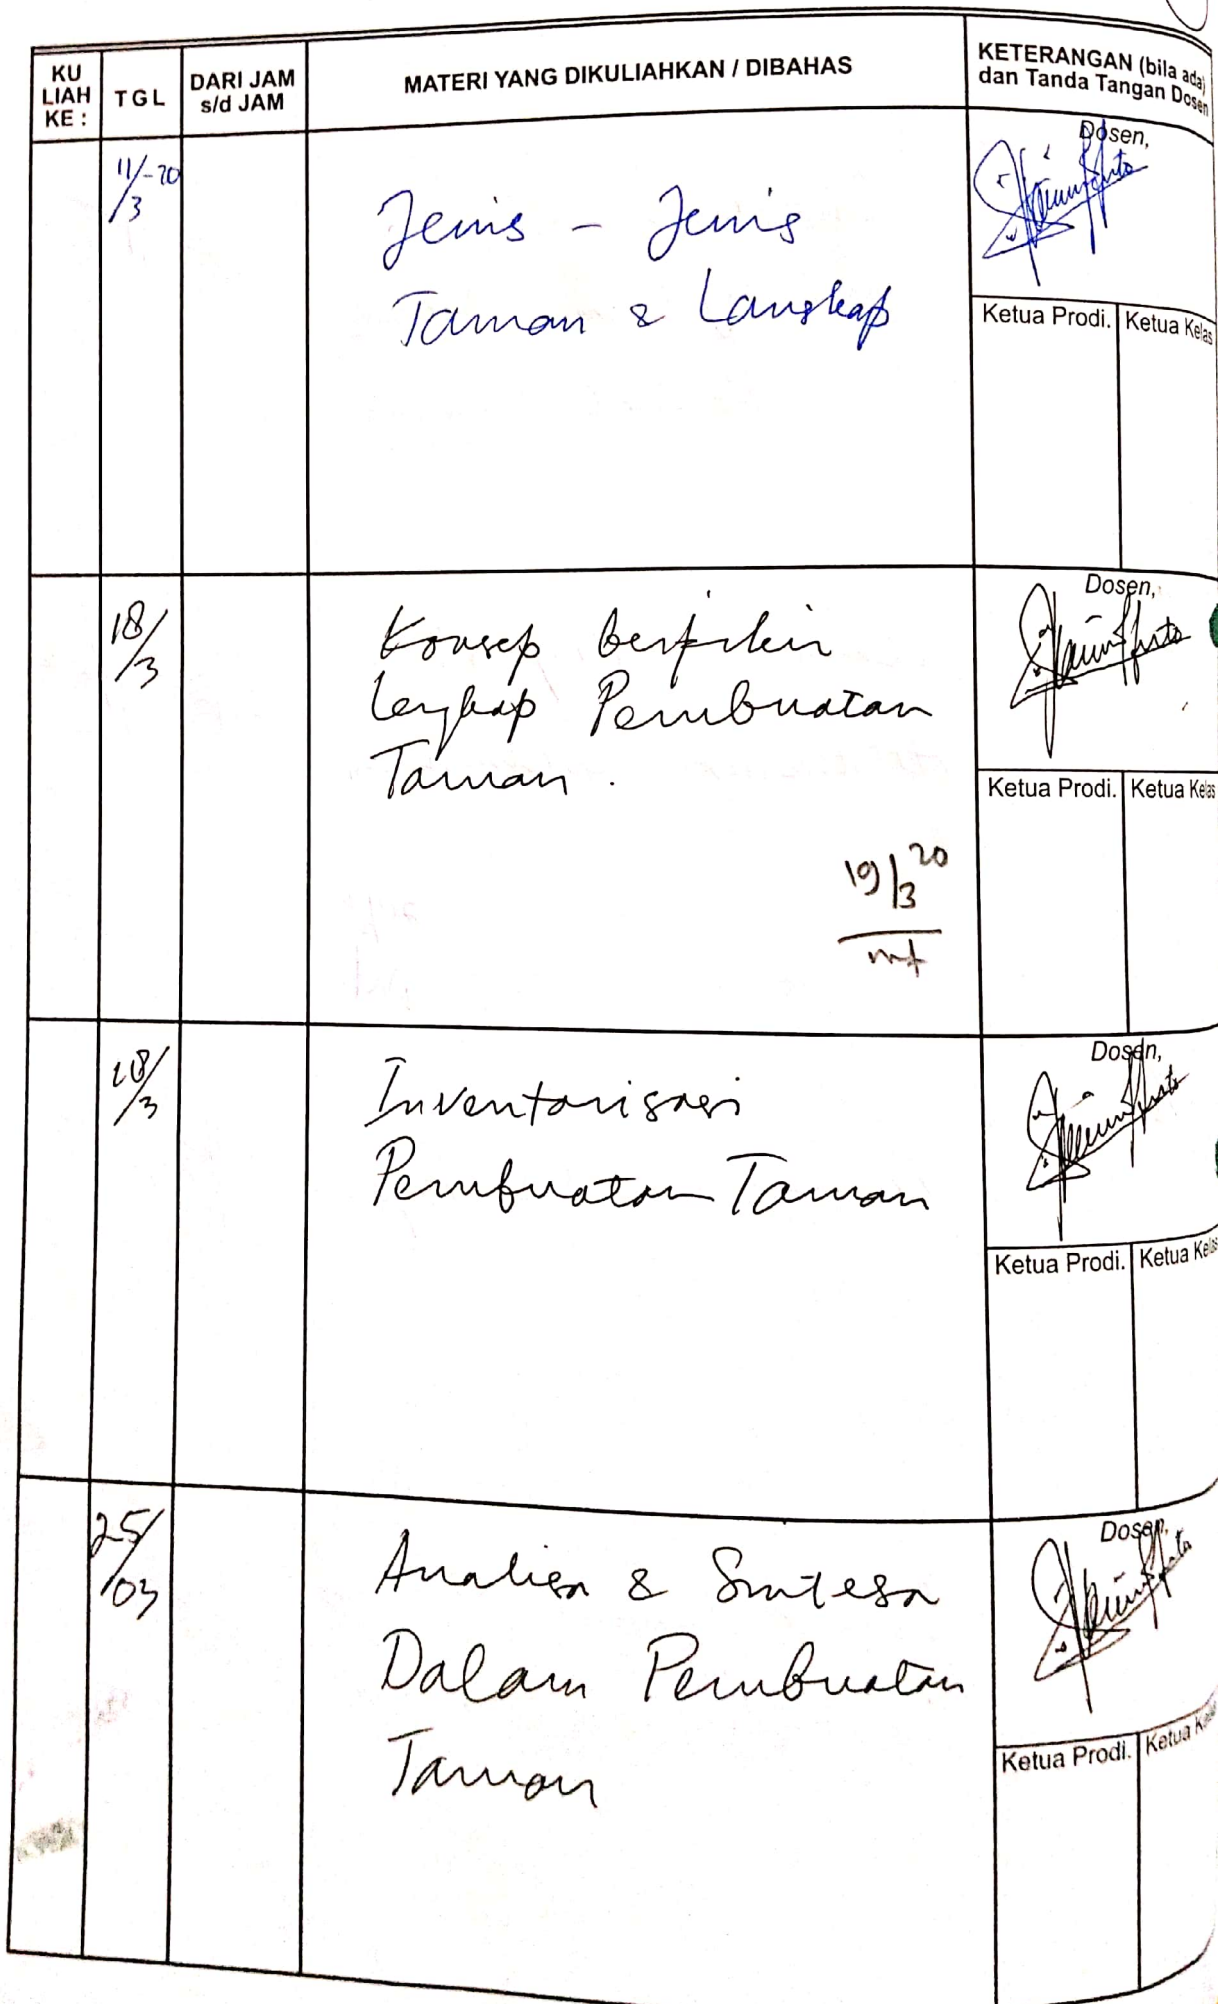 KU LIAH KE :
TGL
DARI JAM s/d JAM
MATERI YANG DIKULIAHKAN / DIBAHAS
KETERANGAN (bila ada)
dan Tanda Tangan Dosen
11/3-20
Jenis - Jenis
Taman & Lanskap
Dosen,
Ketua Prodi.
Ketua Kelas
18/3
Konsep berfikir
lengkap Pembuatan
Taman.
19/3 20
Dosen,
Ketua Prodi.
Ketua Kelas
18/3
Inventarisasi
Pembuatan Taman
Dosen,
Ketua Prodi.
Ketua Kelas
25/03
Analisa & Sintesa
Dalam Pembuatan
Taman
Dosen,
Ketua Prodi.
Ketua Kelas